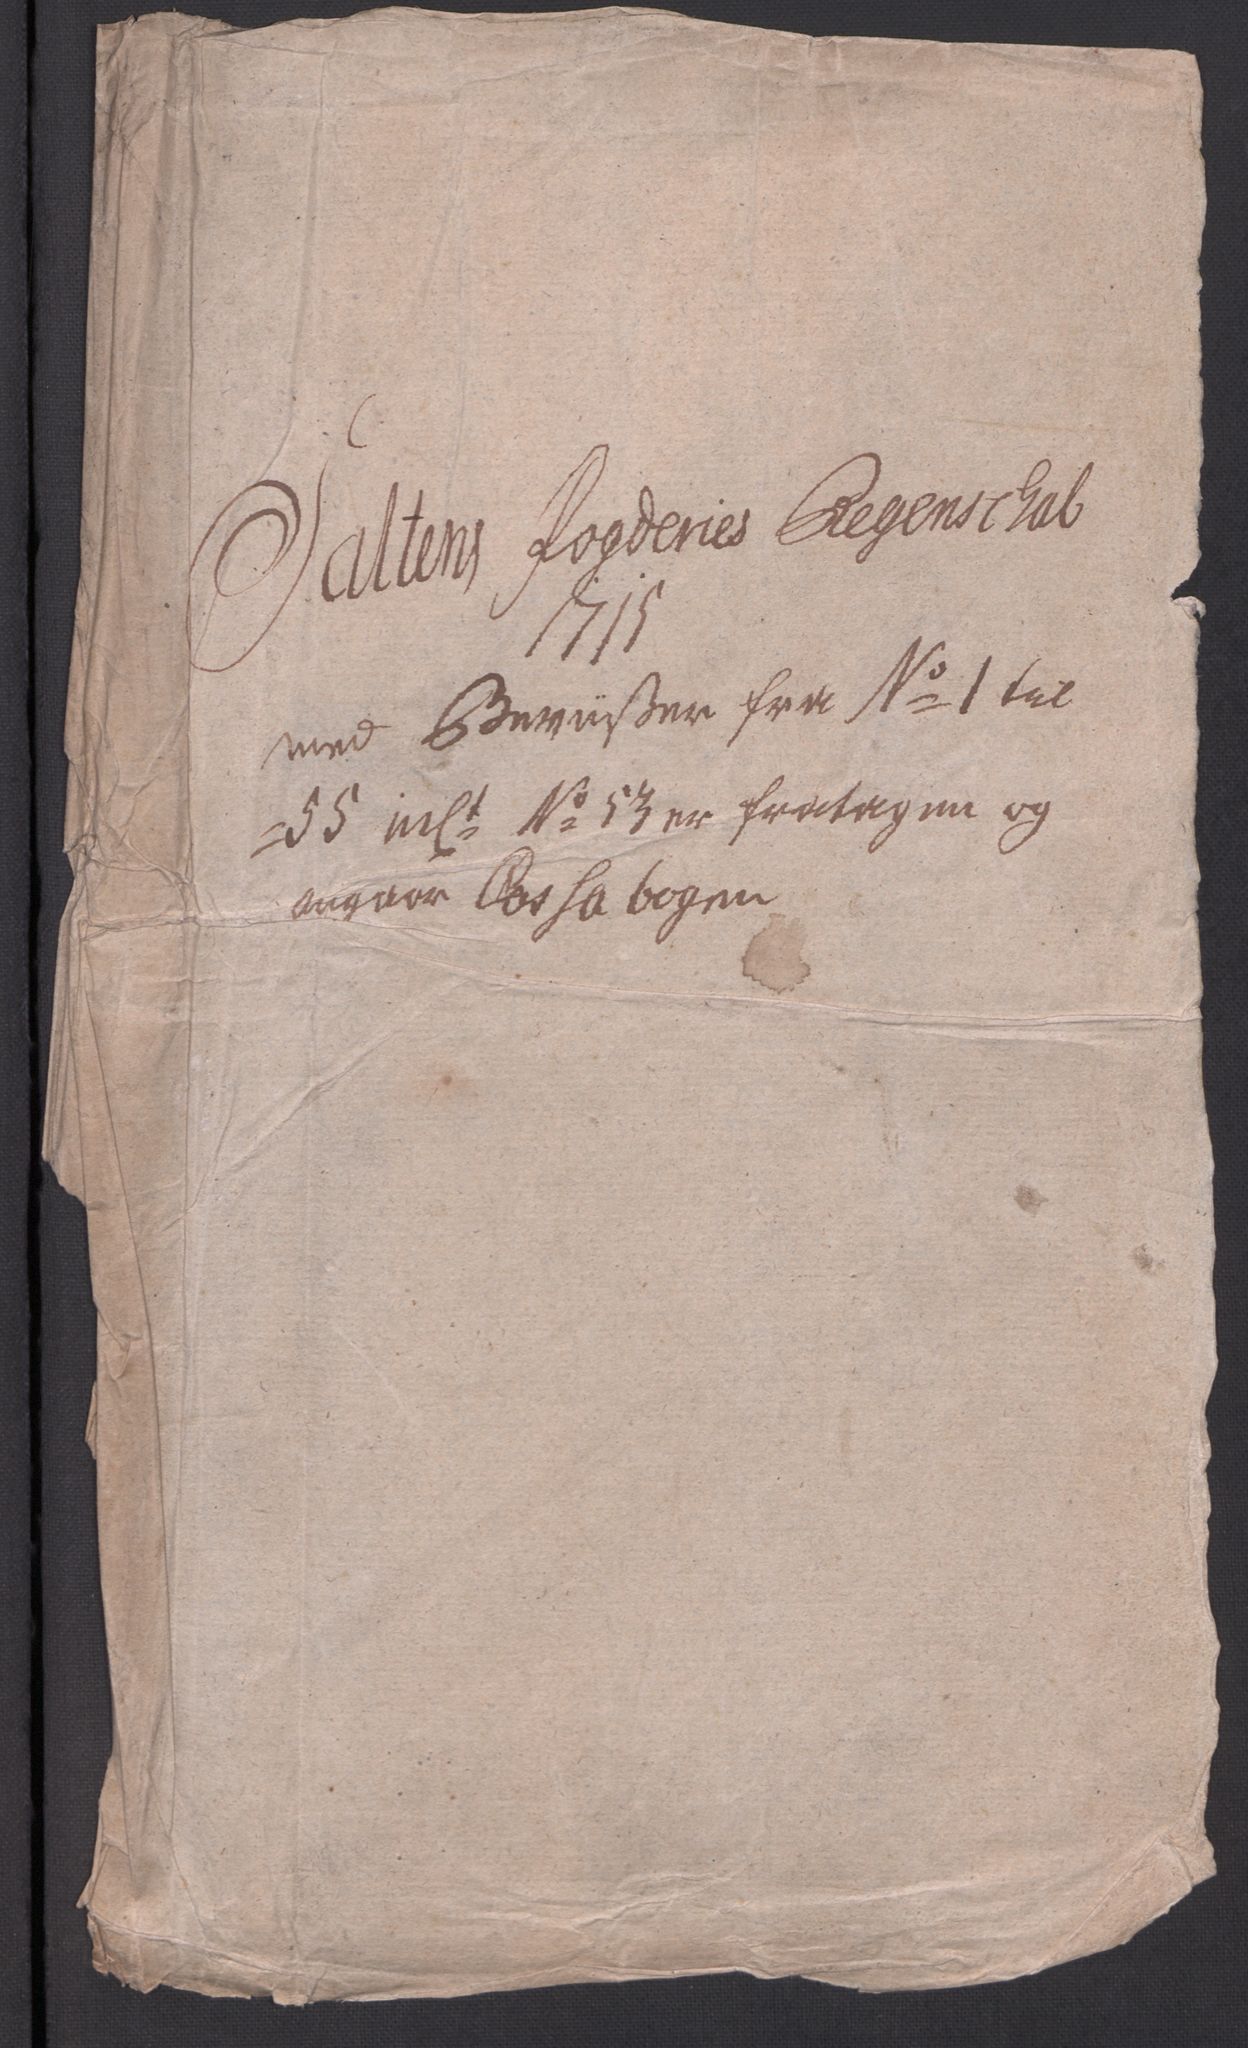 Saltens Fogderies Regenschab
1715
med Beviißer fra No 1 til
55 incl: No 53 er fratagen og
angaar Cassa bogen